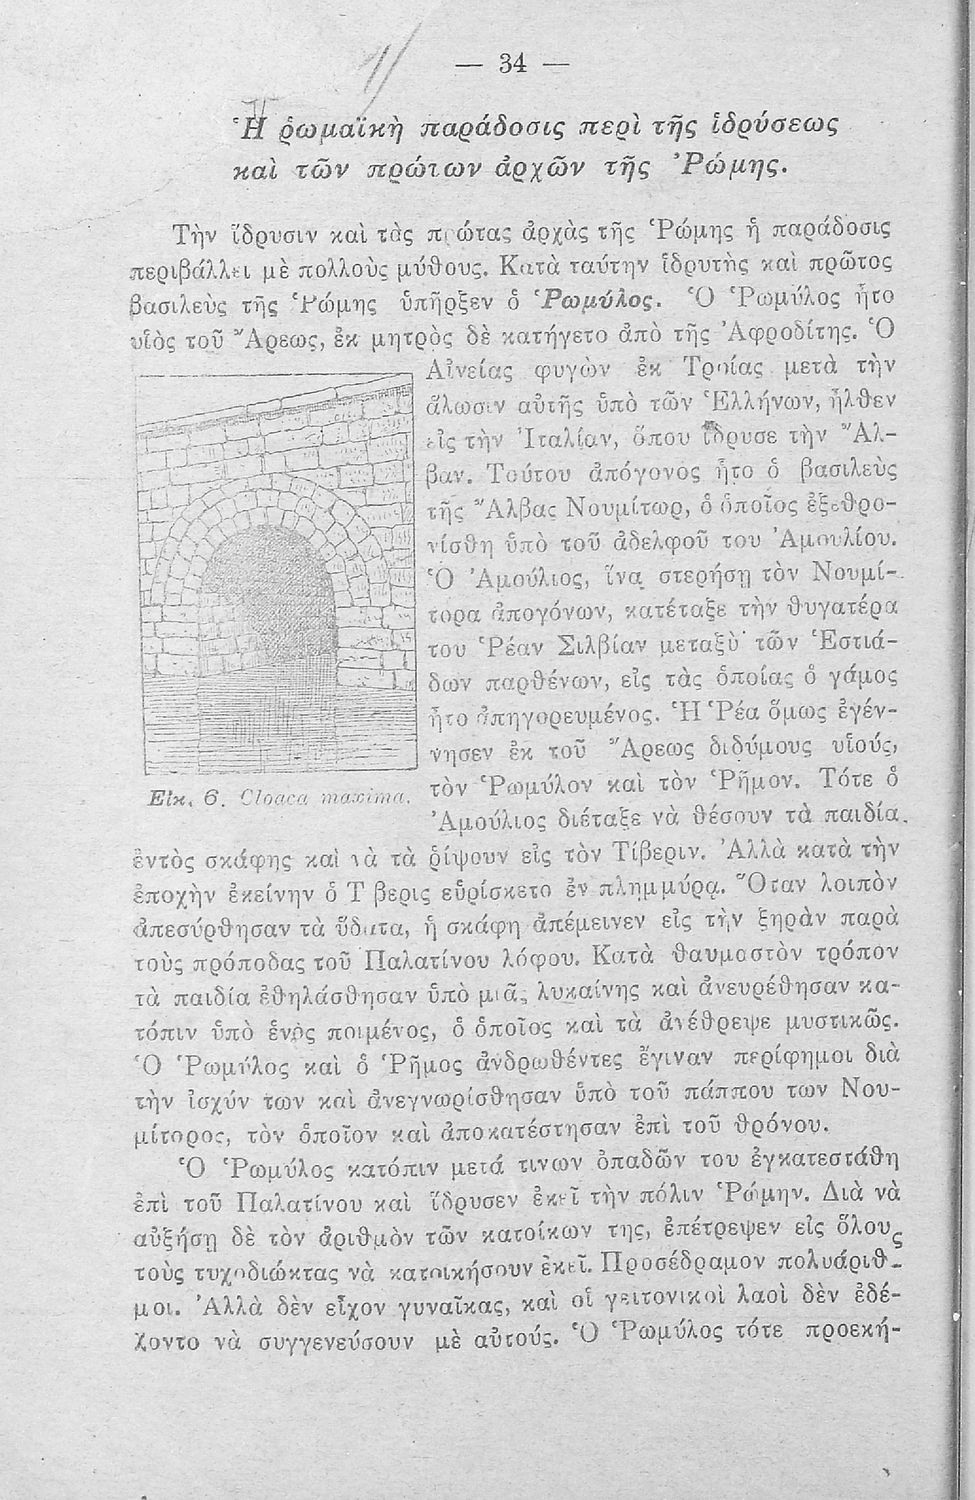 — 34 —
Ἡ ῥωμαϊκὴ παράδοσις περὶ τῆς ἱδρύσεως
καὶ τῶν πρώτων ἀρχῶν τῆς Ῥώμης.
Τὴν ἵδρυσιν καὶ τὰς πρώτας ἀρχὰς τῆς Ῥώμης ἡ παράδοσις
περιβάλλει μὲ πολλοὺς μύθους. Κατὰ ταύτην ἱδρυτὴς καὶ πρῶτος
βασιλεὺς τῆς Ῥώμης ὑπῆρξεν ὁ Ῥωμύλος. Ὁ Ῥωμύλος ἦτο
υἱὸς τοῦ Ἄρεως, ἐκ μητρὸς δὲ κατήγετο ἀπὸ τῆς Ἀφροδίτης. Ὁ
Αἰνείας φυγὼν ἐκ Τροίας μετὰ τὴν
ἅλωσιν αὐτῆς ὑπὸ τῶν Ἑλλήνων, ἦλθεν
εἰς τὴν Ἰταλίαν, ὅπου ἵδρυσε τὴν Ἄλ-
βαν. Τούτου ἀπόγονος ἦτο ὁ βασιλεὺς
τῆς Ἄλβας Νουμίτωρ, ὁ ὁποῖος ἐξεθρο-
νίσθη ὑπὸ τοῦ ἀδελφοῦ του Ἀμουλίου.
Ὁ Ἀμούλιος, ἵνα στερήσῃ τὸν Νουμί-
τορα ἀπογόνων, κατέταξε τὴν θυγατέρα
του Ῥέαν Σιλβίαν μεταξὺ τῶν Ἑστιά-
δων παρθένων, εἰς τὰς ὁποίας ὁ γάμος
ἦτο ἀπηγορευμένος. Ἡ Ῥέα ὅμως ἐγέν-
νησεν ἐκ τοῦ Ἄρεως διδύμους υἱούς,
τὸν Ῥωμύλον καὶ τὸν Ῥῆμον. Τότε ὁ
Ἀμούλιος διέταξε νὰ θέσουν τὰ παιδία
Εἰκ. 6. Cloaca maxima.
ἐντὸς σκάφης καὶ νὰ τὰ ῥίψουν εἰς τὸν Τίβεριν. Ἀλλὰ κατὰ τὴν
ἐποχὴν ἐκείνην ὁ Τίβερις εὑρίσκετο ἐν πλημμύρᾳ. Ὅταν λοιπὸν
ἀπεσύρθησαν τὰ ὕδατα, ἡ σκάφη ἀπέμεινεν εἰς τὴν ξηρὰν παρὰ
τοὺς πρόποδας τοῦ Παλατίνου λόφου. Κατὰ θαυμαστὸν τρόπον
τὰ παιδία ἐθηλάσθησαν ὑπὸ μιᾶς λυκαίνης καὶ ἀνευρέθησαν κα-
τόπιν ὑπὸ ἑνὸς ποιμένος, ὁ ὁποῖος καὶ τὰ ἀνέθρεψε μυστικῶς.
Ὁ Ῥωμύλος καὶ ὁ Ῥῆμος ἀνδρωθέντες ἔγιναν περίφημοι διὰ
τὴν ἰσχύν των καὶ ἀνεγνωρίσθησαν ὑπὸ τοῦ πάππου των Νου-
μίτορος, τὸν ὁποῖον καὶ ἀποκατέστησαν ἐπὶ τοῦ θρόνου.
Ὁ Ῥωμύλος κατόπιν μετά τινων ὀπαδῶν του ἐγκατεστάθη
ἐπὶ τοῦ Παλατίνου καὶ ἵδρυσεν ἐκεῖ τὴν πόλιν Ῥώμην. Διὰ νὰ
αὐξήσῃ δὲ τὸν ἀριθμὸν τῶν κατοίκων της, ἐπέτρεψεν εἰς ὅλους
τοὺς τυχοδιώκτας νὰ κατοικήσουν ἐκεῖ. Προσέδραμον πολυάριθ-
μοι. Ἀλλὰ δὲν εἶχον γυναῖκας, καὶ οἱ γειτονικοὶ λαοὶ δὲν ἐδέ-
χοντο νὰ συγγενεύσουν μὲ αὐτούς. Ὁ Ῥωμύλος τότε προεκή-